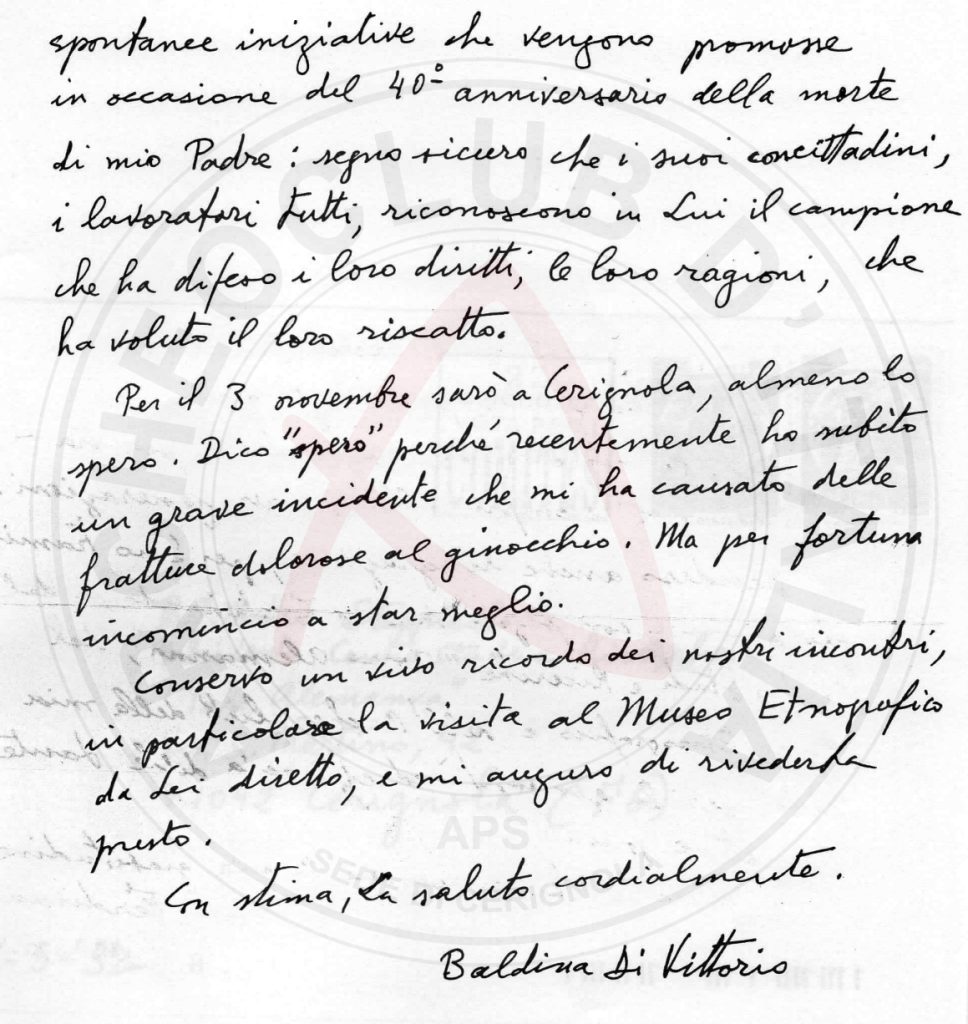 spontanee iniziative che vengono promosse
in occasione del 40° anniversario della morte
di mio Padre: segno sicuro che i suoi concittadini,
i lavoratori tutti, riconoscono in Lui il campione
che ha difeso i loro diritti, le loro ragioni, che
ha voluto il loro riscatto.
Per il 3 novembre sarò a Cerignola, almeno lo
spero. Dico "spero" perché recentemente ho subìto
un grave incidente che mi ha causato delle
fratture dolorose al ginocchio. Ma per fortuna
incomincio a star meglio.
Conservo un vivo ricordo dei nostri incontri,
in particolare la visita al Museo Etnografico
da Lei diretto, e mi auguro di rivederLa
presto.
Con stima, La saluto cordialmente.
Baldina Di Vittorio
ARCHEOCLUB D'ITALIA
APS
SEDE DI CERIGNOLA